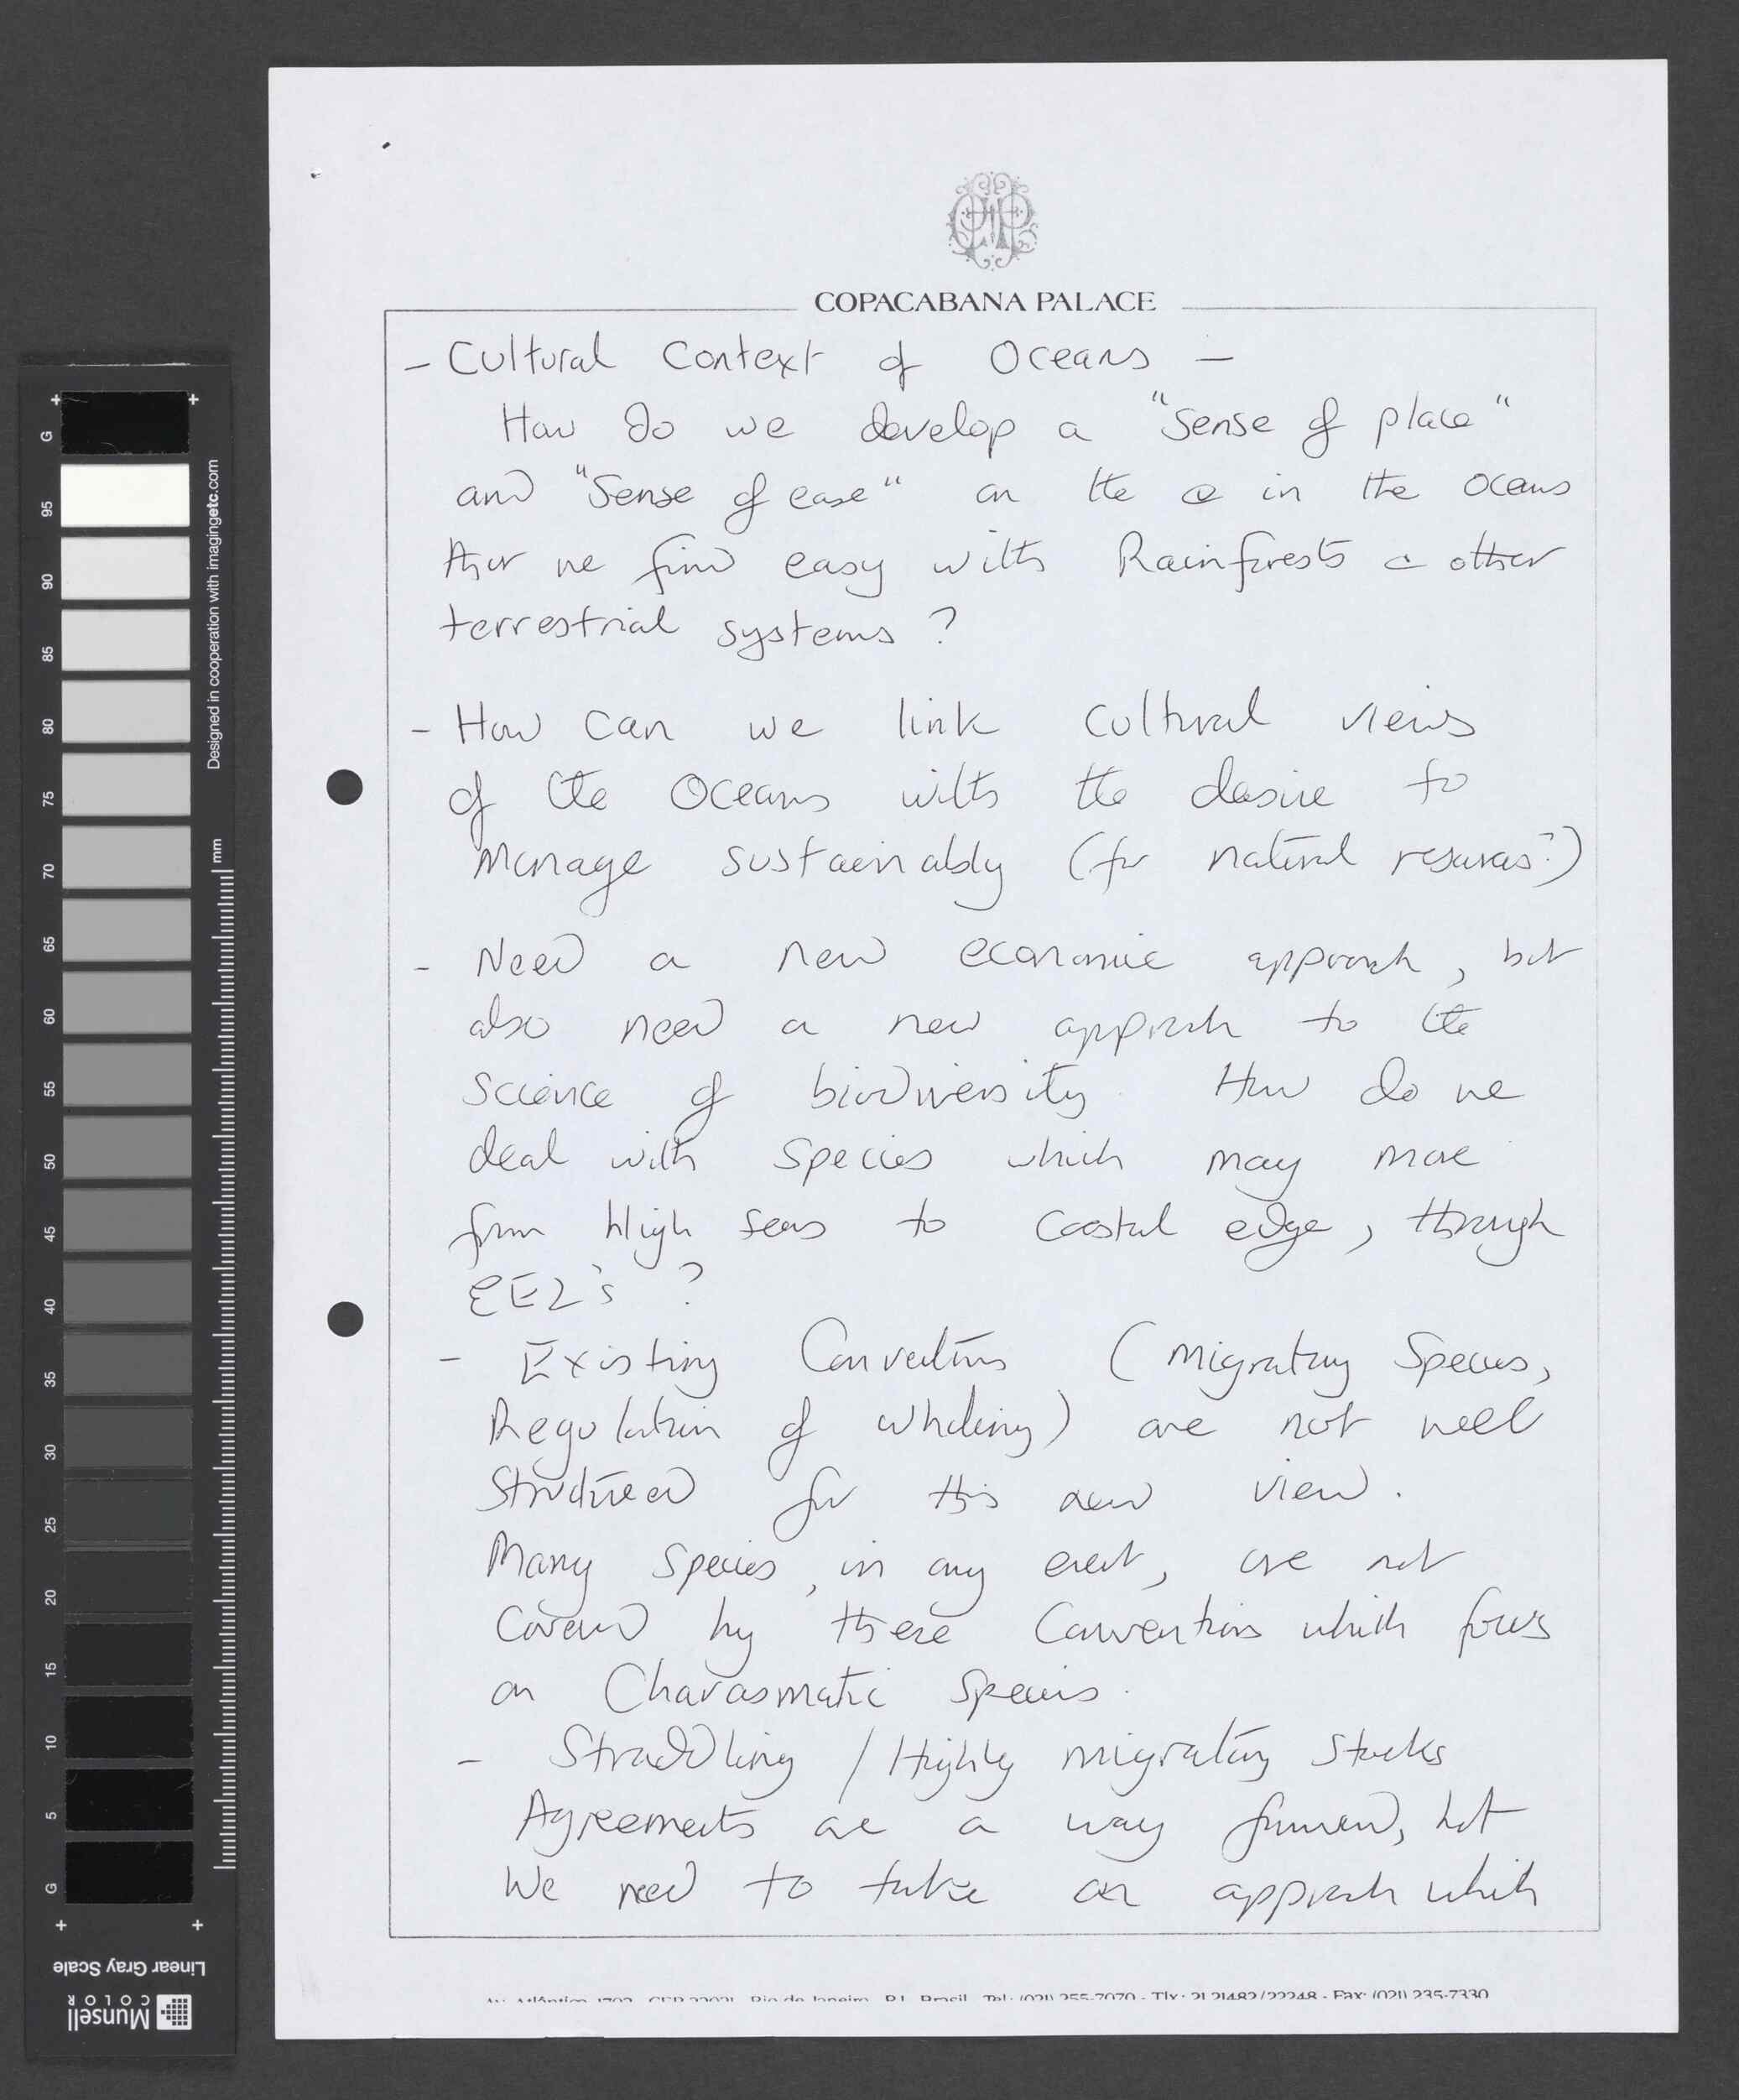 COPACABANA PALACE
- Cultural Context of Oceans -
How do we develop a "sense of place"
and "sense of ease" on the & in the oceans
that we find easy with Rainforests & other
terrestrial systems?
- How can we link cultural views
of the Oceans with the desire to
manage sustainably (for natural resources?)
- Need a new economic approach, but
also need a new approach to the
science of biodiversity. How do we
deal with species which may move
from High seas to coastal edge, through
EEZ's ?
- Existing Conventions (Migratory Species,
Regulation of Whaling) are not well
structured for this new view.
Many species, in any event, are not
covered by these Conventions which focus
on Charasmatic species.
- Straddling / Highly migratory Stocks
Agreements are a way forward, but
We need to take an approach which
Av. Atlântica 1702 - CEP 22021 - Rio de Janeiro - RJ - Brasil - Tel.: (021) 255-7070 - Tlx: 21 21482/22248 - Fax: (021) 235-7330
G
95
90
85
80
75
70
65
60
55
50
45
40
35
30
25
20
15
10
5
G
Designed in cooperation with imagingetc.com
mm
Linear Gray Scale
Munsell
COLOR